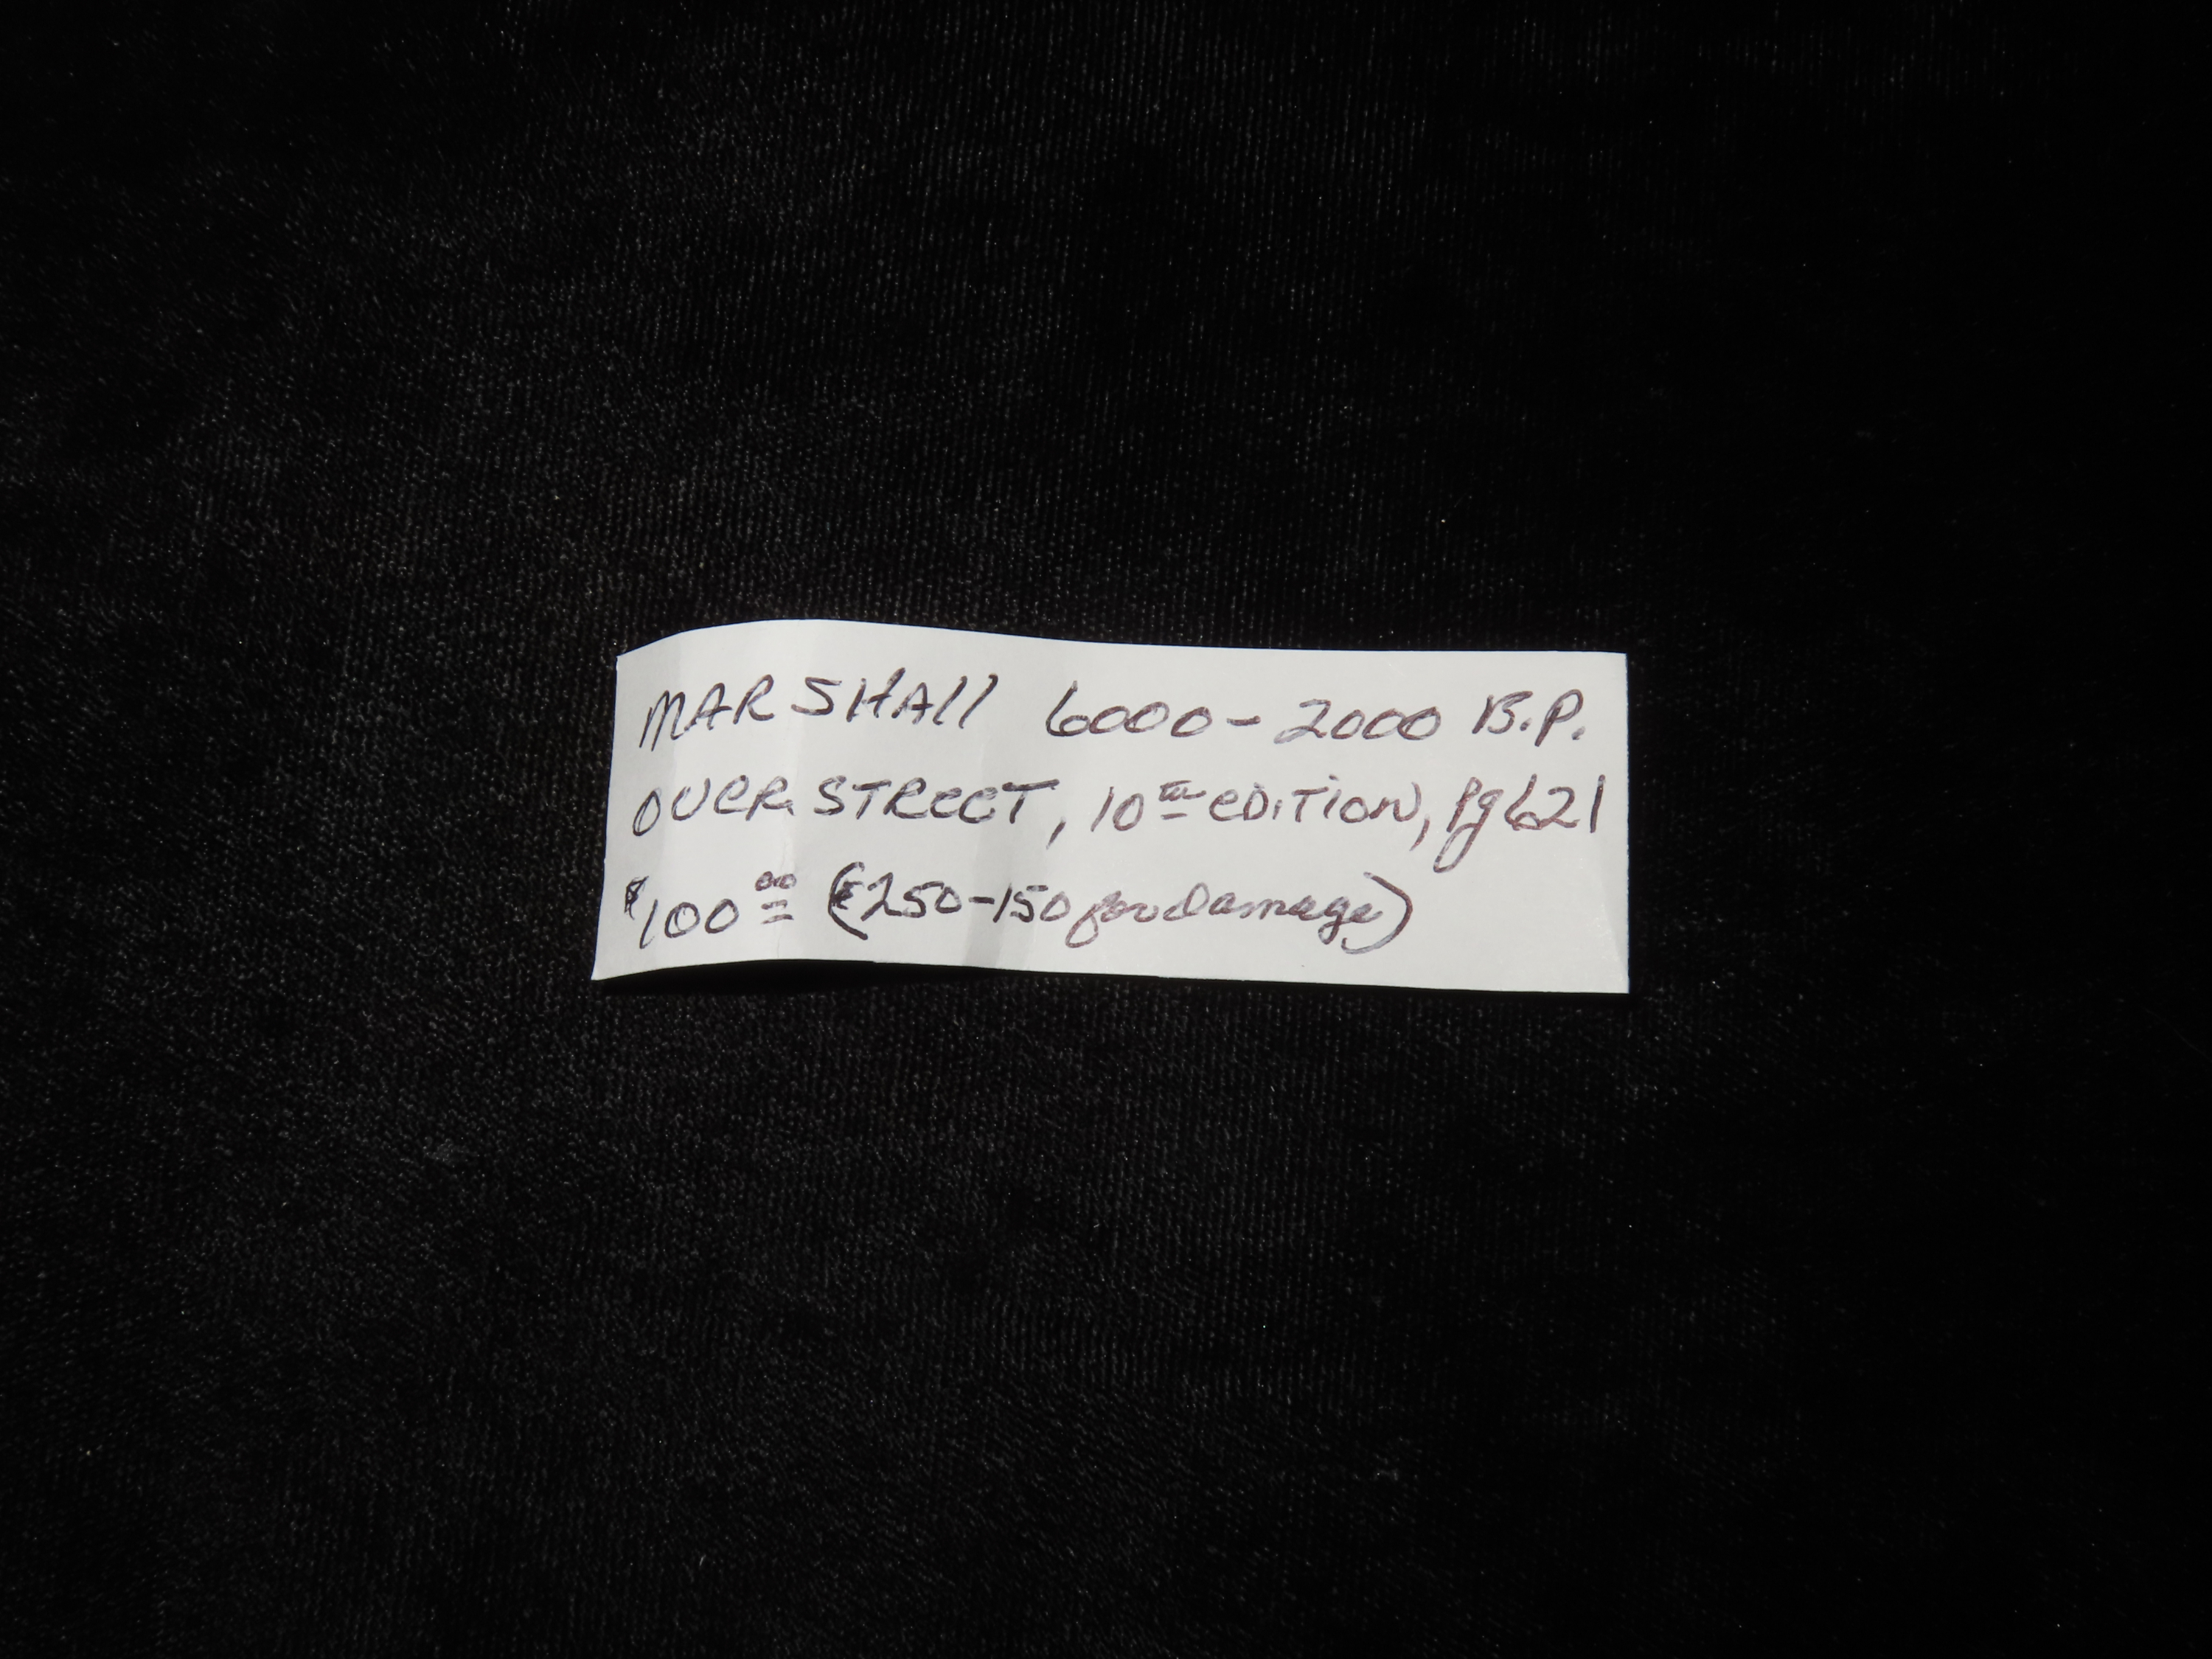 MARSHAll 6000-2000 B.P.
OVERSTREET, 10th EDITION, Pg 621
$100.00 ($250-150 for Damage)